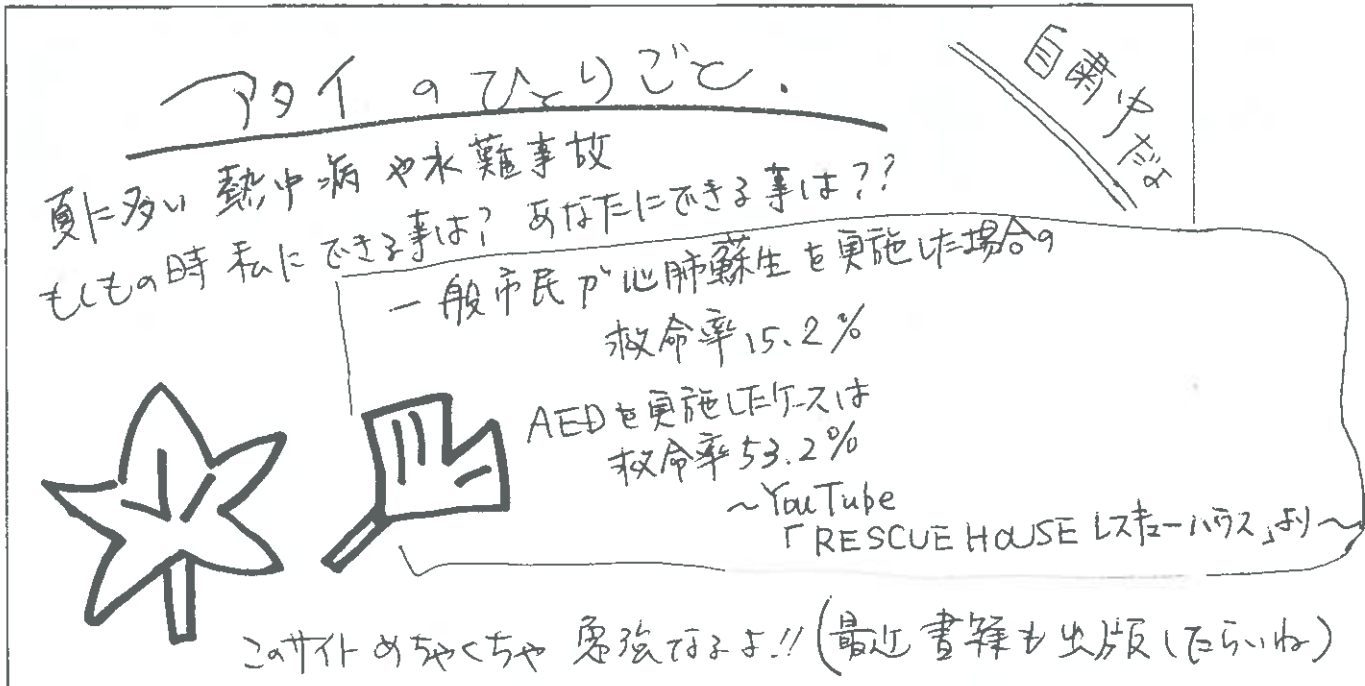 アタイのひとりごと.
自粛中だよ
夏に多い 熱中病や水難事故
もしもの時 私にできる事は? あなたにできる事は??
一般市民が心肺蘇生を実施した場合の
救命率15.2%
AEDを実施したケースは
救命率53.2%
~YouTube
「RESCUE HOUSE レスキューハウス」より~
このサイトめちゃくちゃ 勉強なるよ!! (最近書籍も出版したらいね)